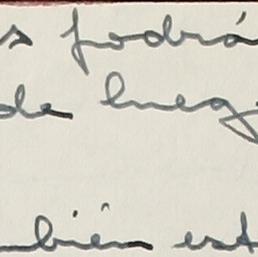 s podrá
de lueg
mbién est